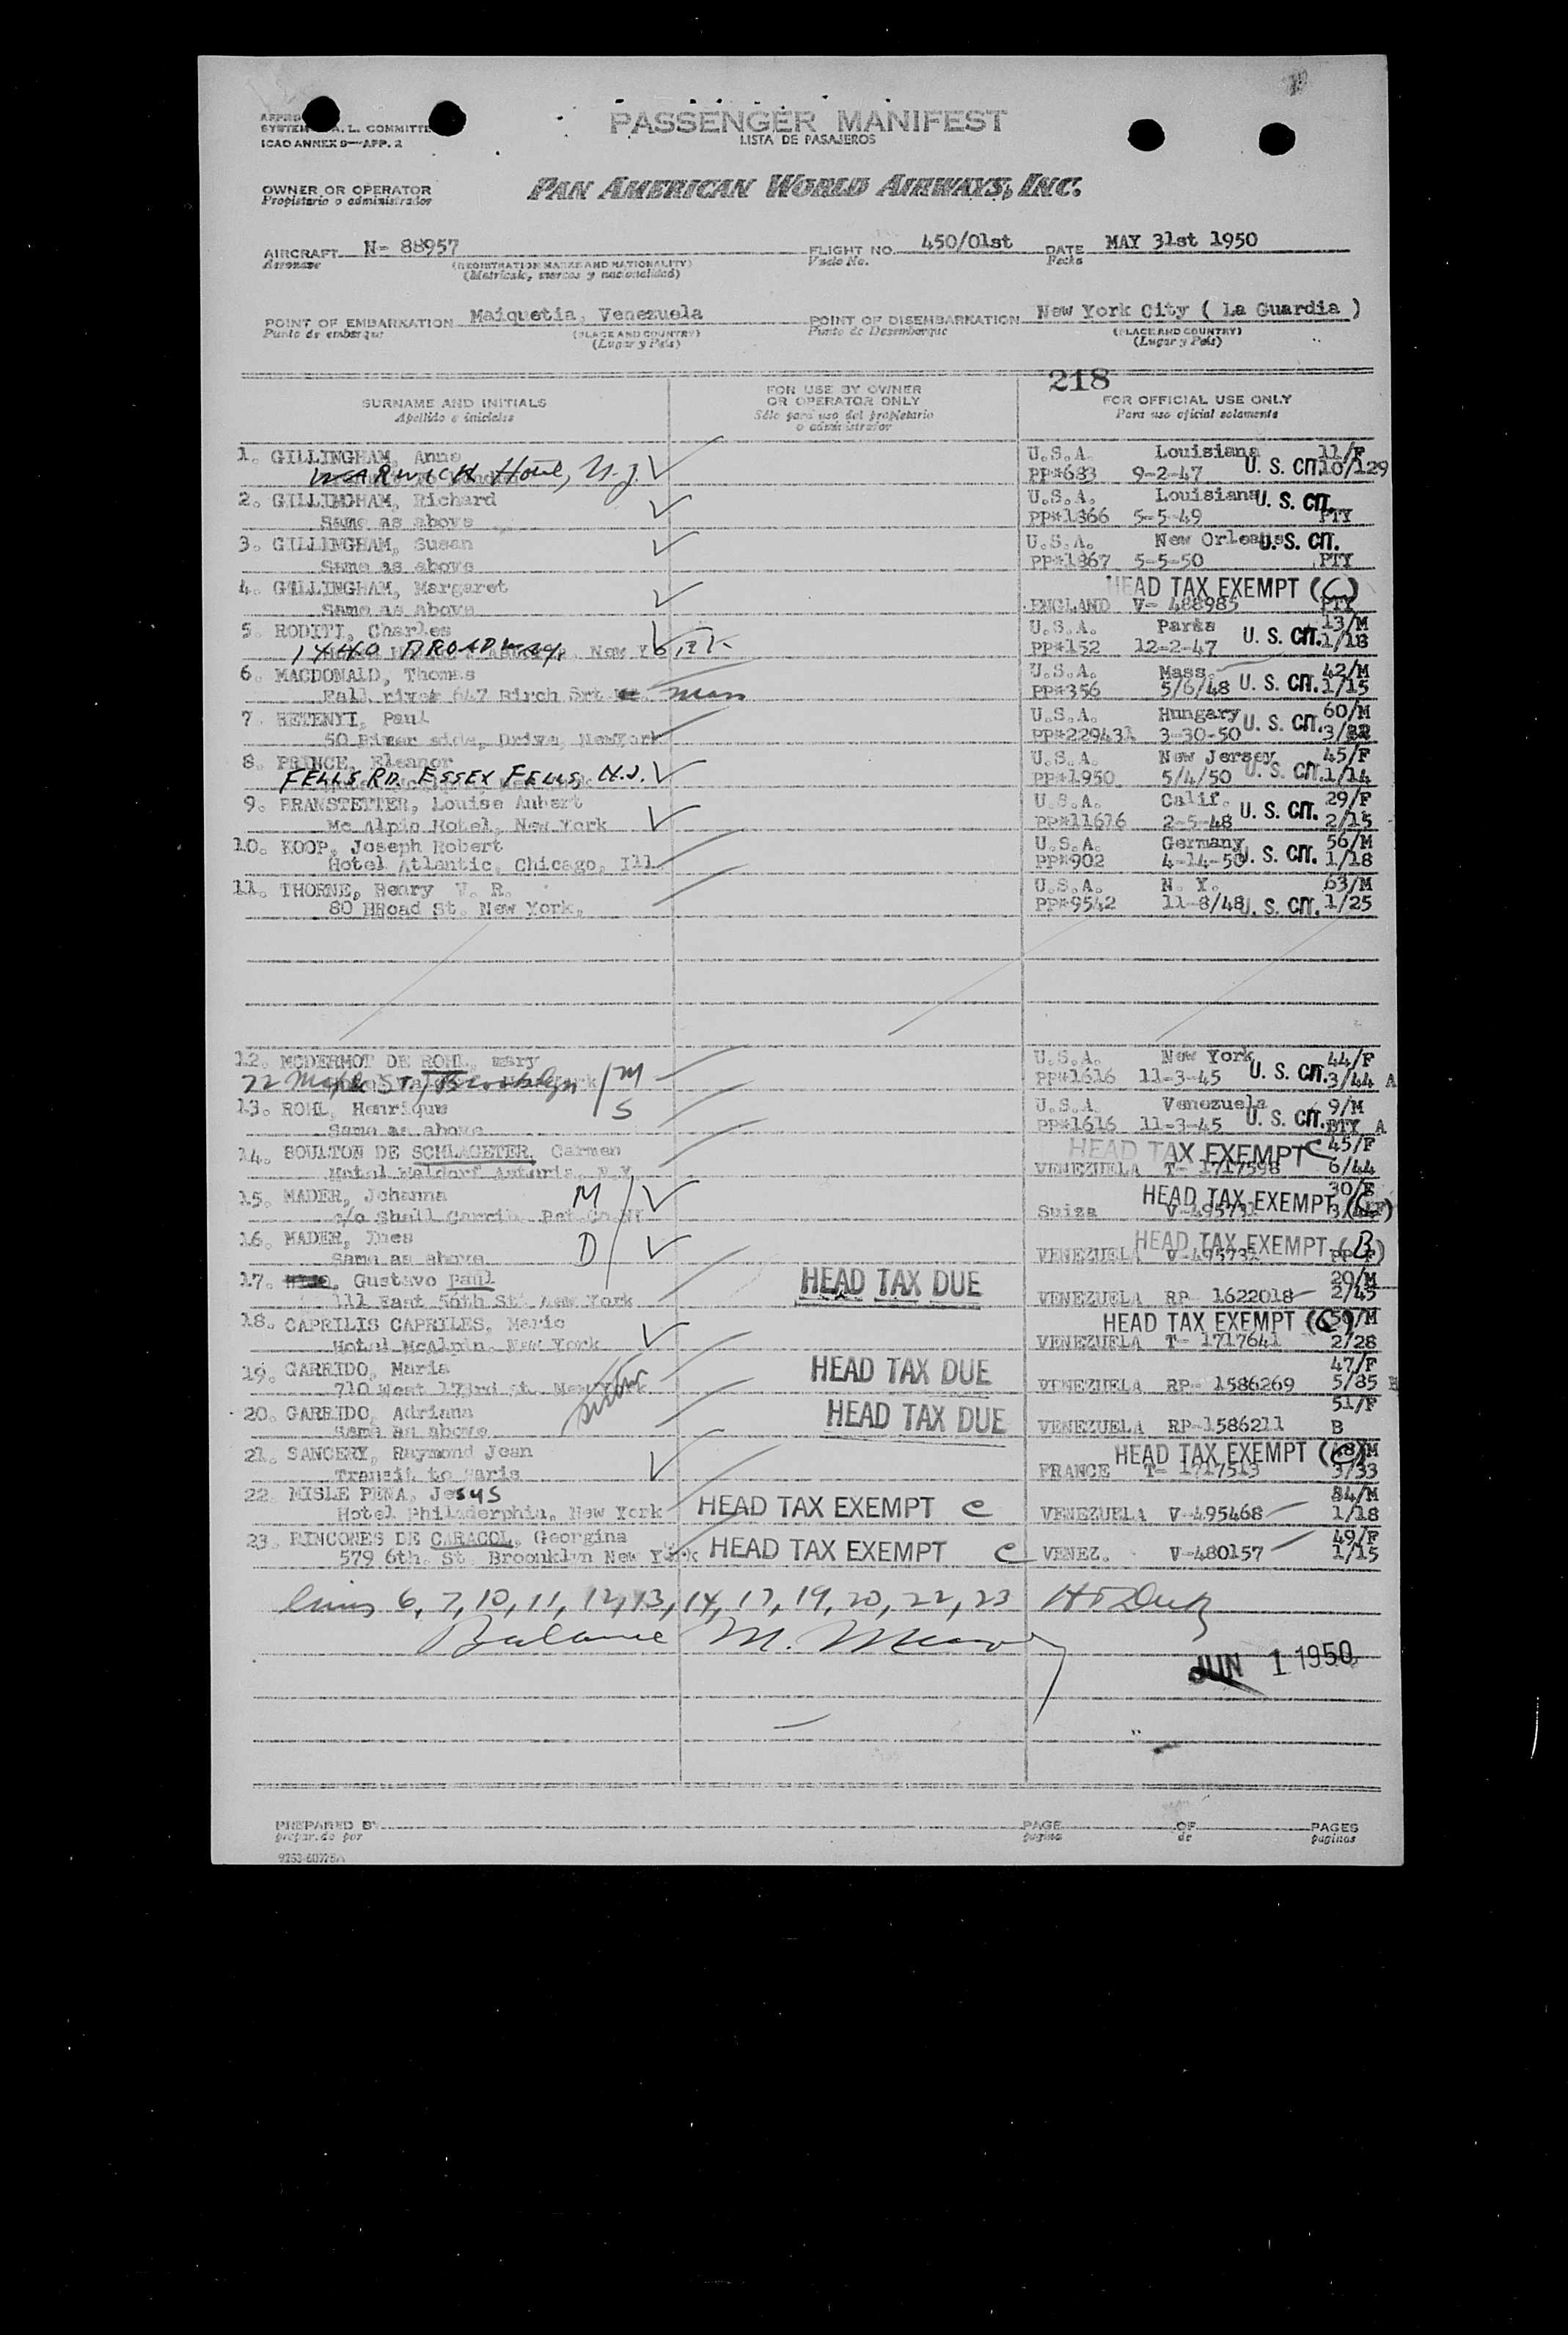 PASSENGER MANIFEST
LISTA DE PASAJEROS
SYSTEM A. L. COMMITTE
ICAO ANNEX 9—APP. 2
OWNER OR OPERATOR
Propietario o administrador
PAN AMERICAN WORLD AIRWAYS, INC.
AIRCRAFT N- 88957 FLIGHT NO. 450/01st DATE MAY 31st 1950
Aeronave (REGISTRATION MARKS AND NATIONALITY) Vuelo No. Fecha
(Matrícula, marcas y nacionalidad)
POINT OF EMBARKATION Maiquetia, Venezuela POINT OF DISEMBARKATION New York City ( La Guardia )
Punto de embarque (PLACE AND COUNTRY) Punto de Desembarque (PLACE AND COUNTRY)
(Lugar y País) (Lugar y País)
218
SURNAME AND INITIALS FOR USE BY OWNER OR OPERATOR ONLY FOR OFFICIAL USE ONLY
Apellido e iniciales Sólo para uso del propietario o administrador Para uso oficial solamente
1. GILLINGHAM, Anne U.S.A. Louisiana 11/F
WARWICK Hotel, N.Y. PP#683 9-2-47 U. S. CIT. 10/129
2. GILLINGHAM, Richard U.S.A. Louisiana U. S. CIT.
Same as above PP#1366 5-5-49 PTY
3. GILLINGHAM, Susan U.S.A. New Orleans U. S. CIT.
Same as above PP#1867 5-5-50 PTY
4. GILLINGHAM, Margaret HEAD TAX EXEMPT (C)
Same as Above ENGLAND V- 488985 PTY
5. RODITI, Charles U.S.A. Paris 13/M
1440 BROADWAY, New Y PP#152 12-2-47 U. S. CIT. 1/18
6. MACDONALD, Thomas U.S.A. Mass. 42/M
Fall river 647 Birch Srt Mass PP#356 5/6/48 U. S. CIT. 1/15
7. HETENYI, Paul U.S.A. Hungary U. S. CIT. 60/M
50 River side, Drive, NewYork PP#229431 3-30-50 3/22
8. PRINCE, Eleanor U.S.A. New Jersey 45/F
FELLS RD. ESSEX FELLS, N.J. PP#1950 5/4/50 U. S. CIT. 1/14
9. BRANSTETTER, Louise Aubert U.S.A. Calif. 29/F
Mc Alpin Hotel, New York PP#11616 2-5-48 U. S. CIT. 2/15
10. KOOP, Joseph Robert U.S.A. Germany 56/M
Hotel Atlantic, Chicago, Ill. PP#902 4-14-50 U. S. CIT. 1/18
11. THORNE, Henry V. R. U.S.A. N. Y. 63/M
80 BRoad St. New York. PP#9542 11-8/48 U. S. CIT. 1/25
12. MCDERMOT DE ROHL, mary U.S.A. New York 44/F
72 Maple ST, Brooklyn M PP#1616 11-3-45 U. S. CIT. 3/44 A
13. ROHL, Henrique S U.S.A. Venezuela 9/M
Same as above PP#1616 11-3-45 U. S. CIT. PTY A
14. BOULTON DE SCHLAGETER, Carmen HEAD TAX EXEMPT C 45/F
Hotel Waldorf Astoria, N.Y. VENEZUELA T- 1717598 6/44
15. MADER, Johanna M HEAD TAX EXEMPT 30/F
c/o Shell Carrib. Pet.Co.NY Suiza V-495731
16. MADER, Ines D HEAD TAX EXEMPT (B)
Same as above VENEZUELA V-495732
17. Gustavo Paul HEAD TAX DUE 29/M
111 East 56th St. New York VENEZUELA RP- 1622018 2/45
18. CAPRILIS CAPRILES, Mario HEAD TAX EXEMPT (C) 50/M
Hotel McAlpin, New York VENEZUELA T- 1717641 2/28
19. GARRIDO, Maria HEAD TAX DUE 47/F
710 West 173rd St. New York VENEZUELA RP- 1586269 5/35
20. GARRIDO, Adriana sister HEAD TAX DUE 51/F
Same as above VENEZUELA RP-1586211 B
21. SANCERY, Raymond Jean HEAD TAX EXEMPT (C)
Transit to Paris FRANCE T- 1717513 3/33
22. MISLE PENA, Jesus 34/M
Hotel Philaderphia, New York HEAD TAX EXEMPT C VENEZUELA V-495468 1/18
23. RINCONES DE CARACOL, Georgina 49/F
579 6th. St Broonklyn New York HEAD TAX EXEMPT C VENEZ. V-480157 1/15
Lines 6, 7, 10, 11, 12, 13, 14, 17, 19, 20, 22, 23
Balance M.
JUN 1 1950
PREPARED BY PAGE OF PAGES
preparado por pagina de paginas